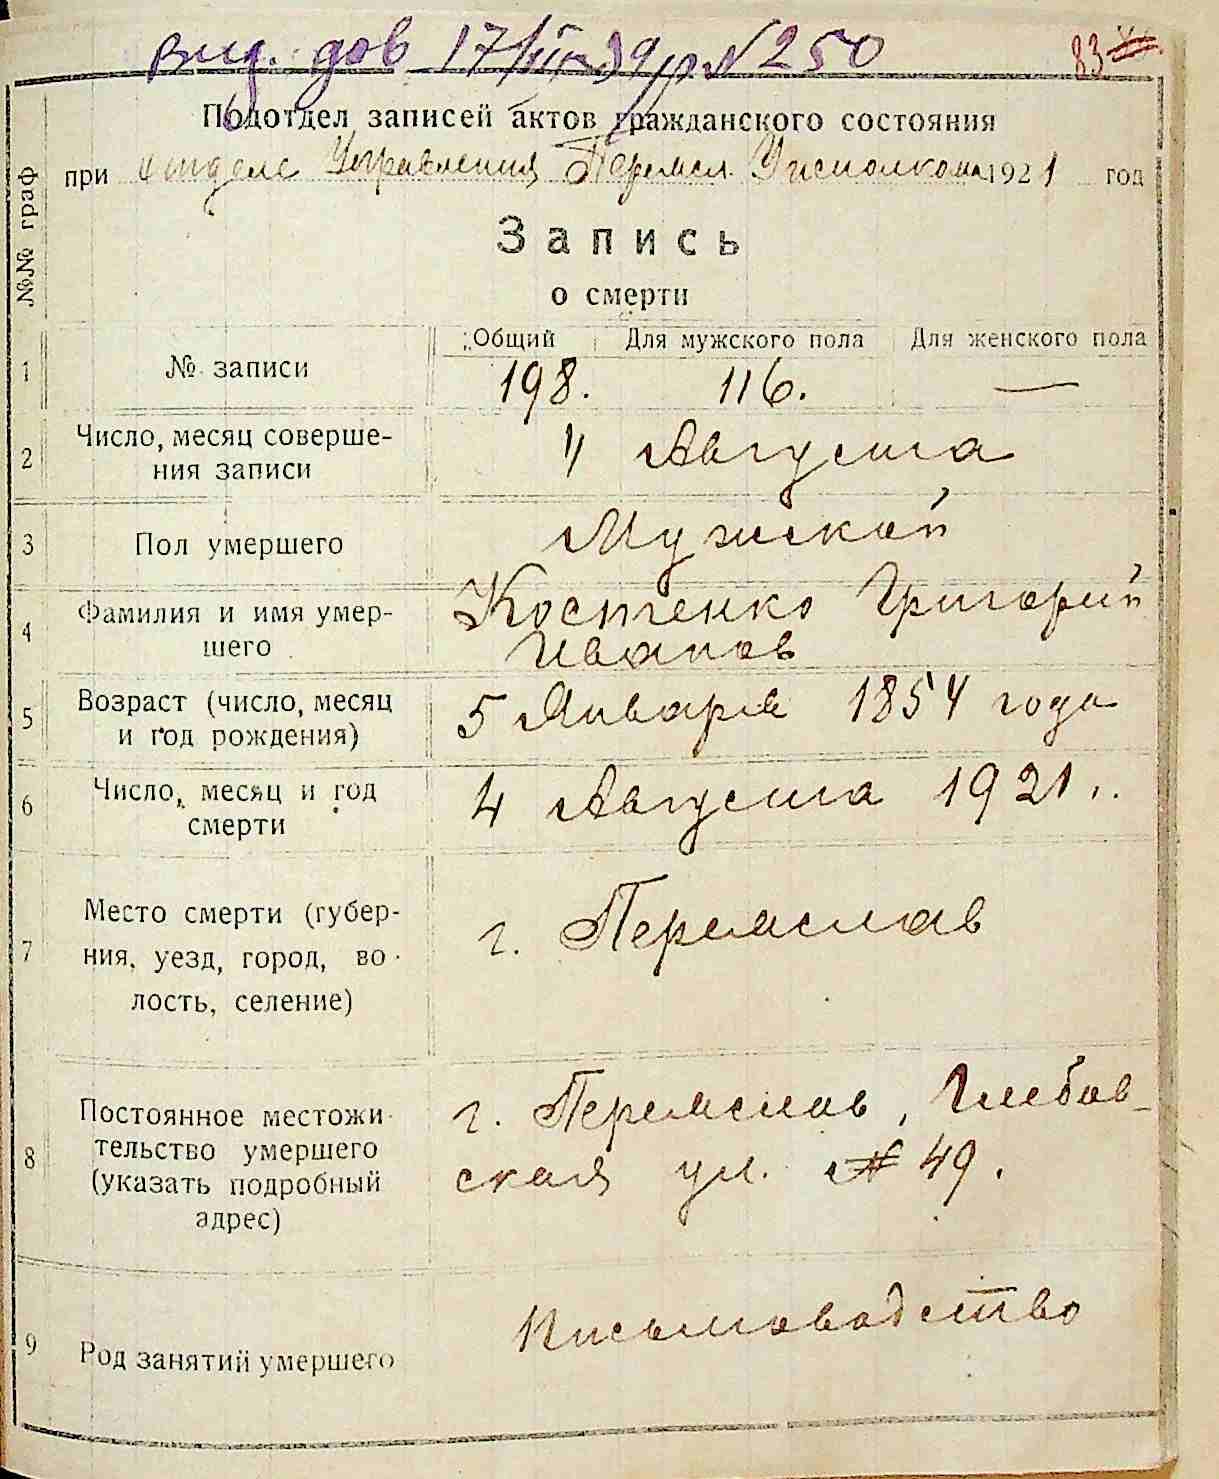 вид. дов 17/III-39 р № 250
83
Подотдел записей актов гражданского состояния
при Отделе Управления Перемсл. Уисполкома 1921 год
Запись
о смерти
№№ граф
Общий Для мужского пола Для женского пола
1 № записи 198. 116. —
2 Число, месяц соверше-
ния записи
4 Августа
3 Пол умершего Мужской
4 Фамилия и имя умер-
шего
Костенко Григорий
Иванов
5 Возраст (число, месяц
и год рождения)
5 Января 1854 года
6 Число, месяц и год
смерти
4 Августа 1921 г.
7 Место смерти (губер-
ния, уезд, город, во-
лость, селение)
г. Перемслав
8 Постоянное местожи-
тельство умершего
(указать подробный
адрес)
г. Перемслав, Глебов-
ская ул. № 49.
9 Род занятий умершего
Письмоводство